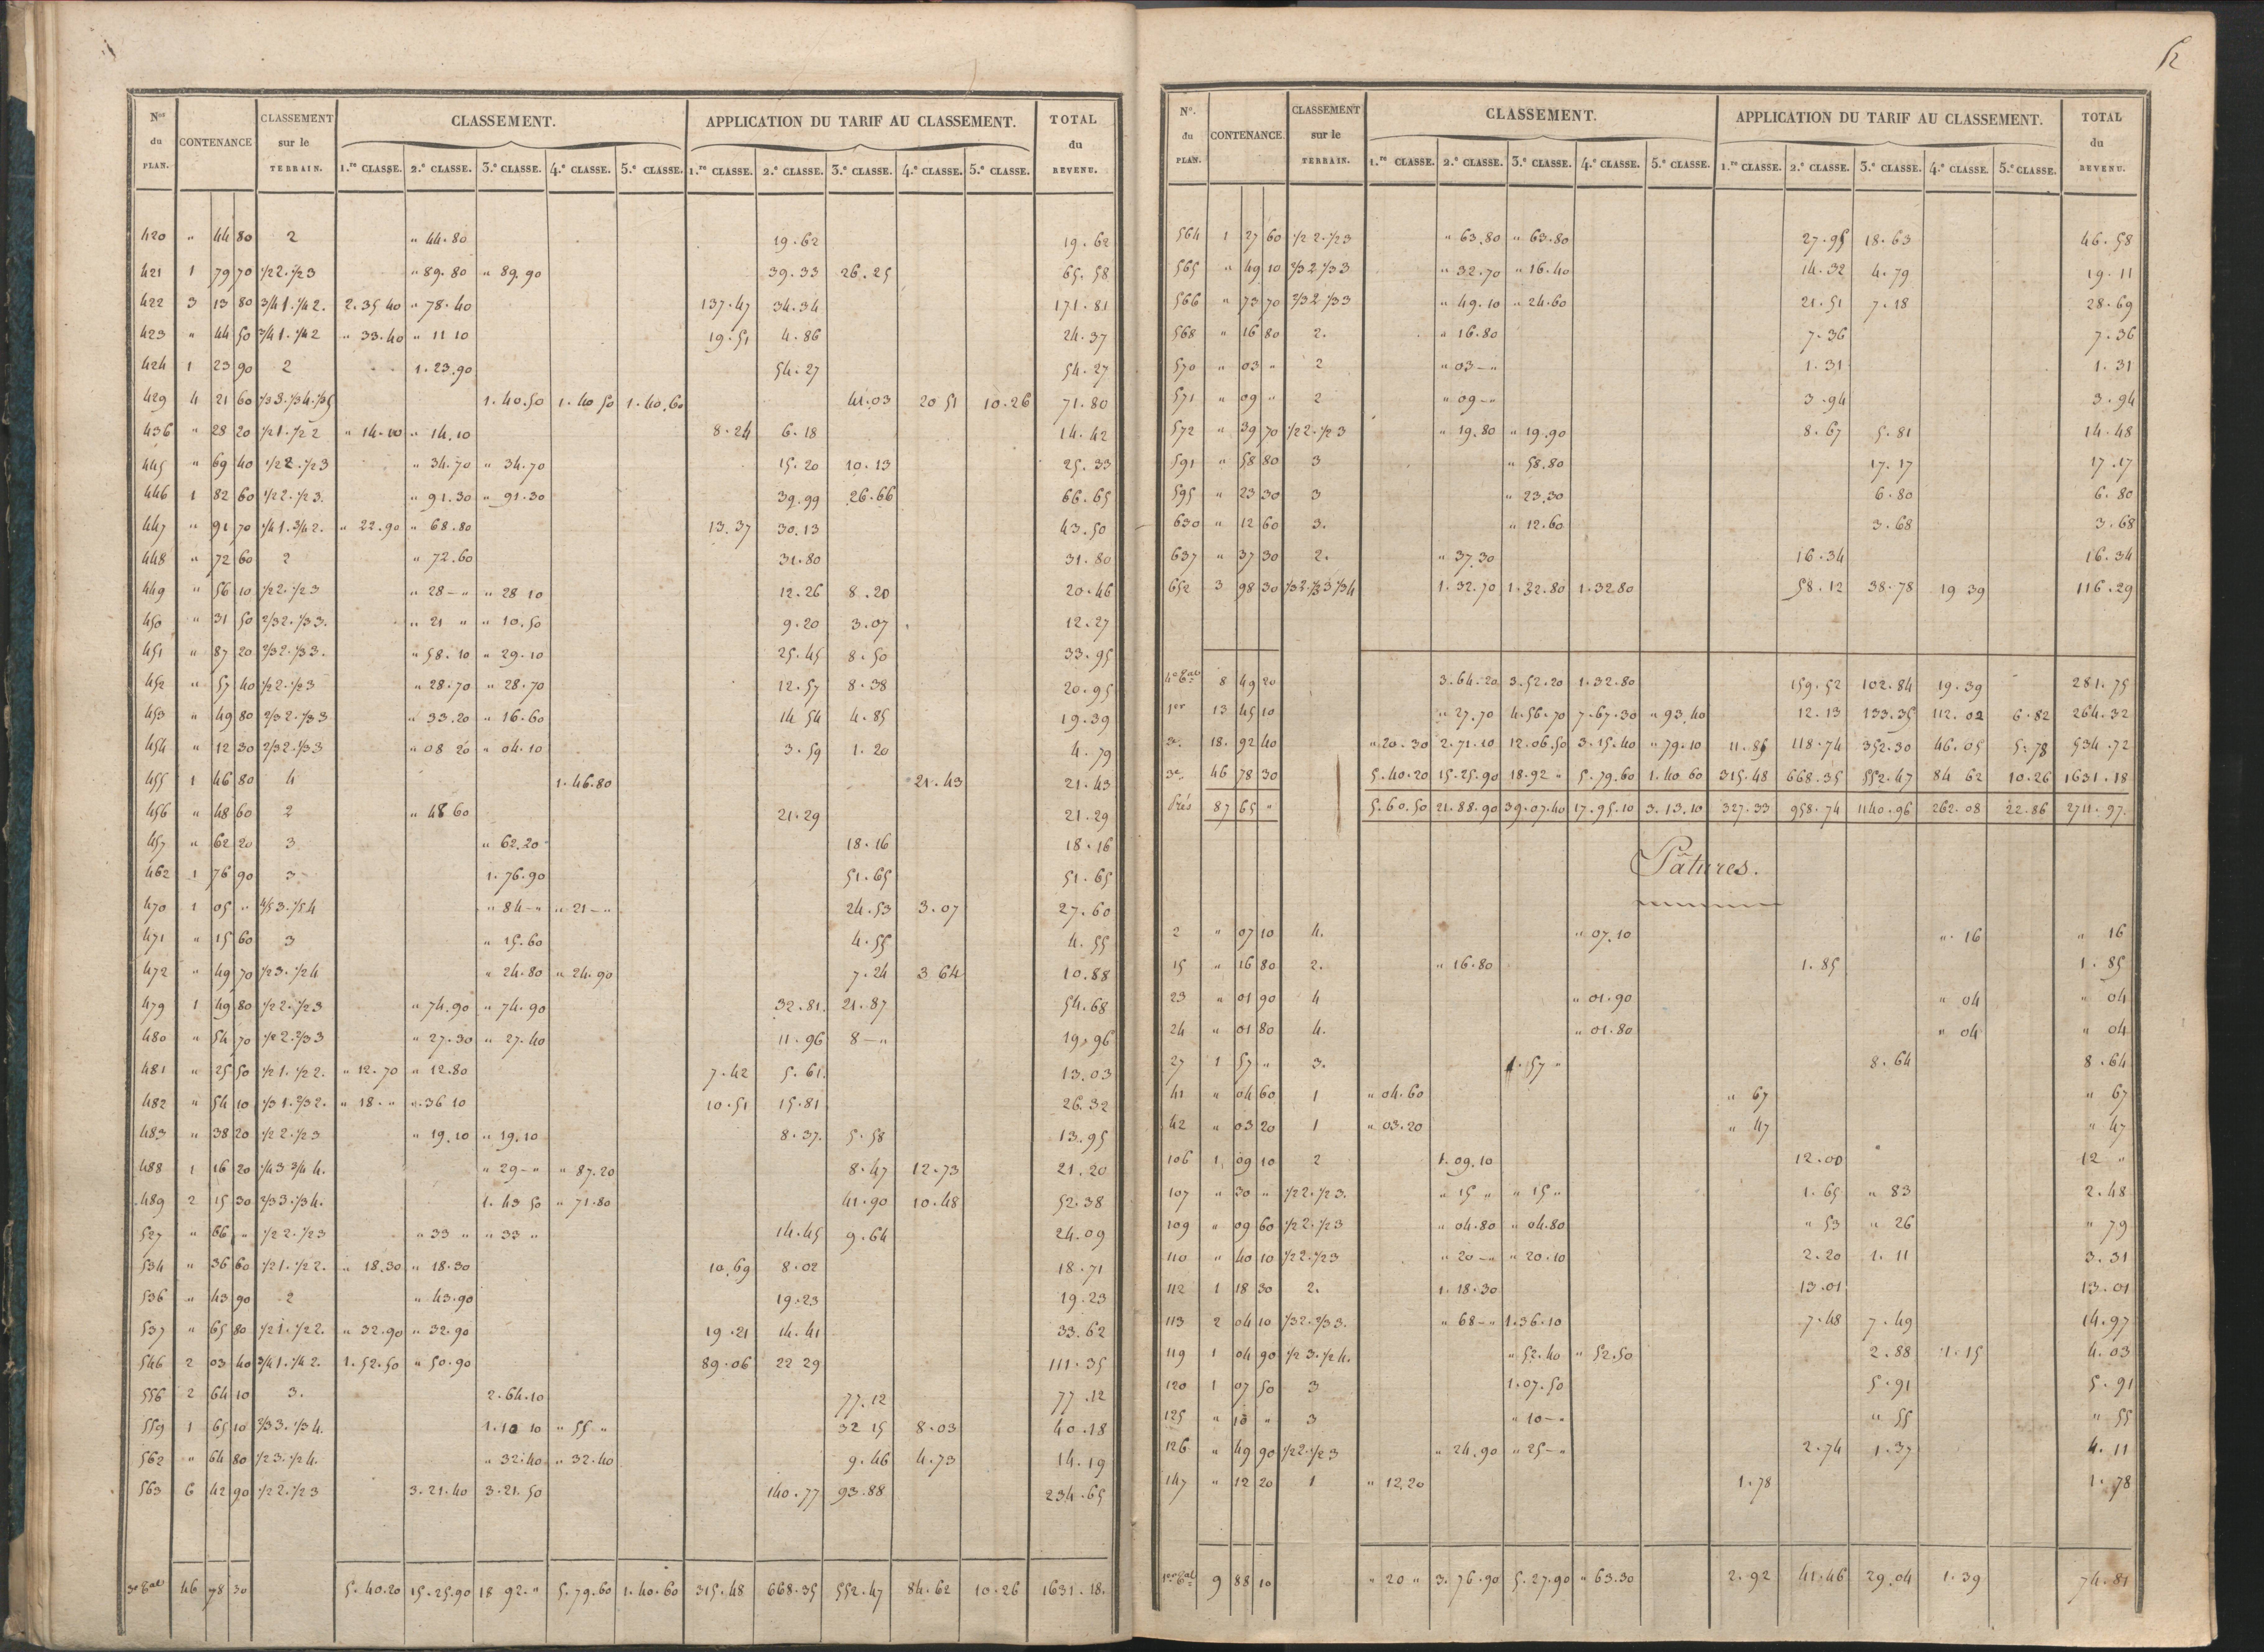 Nos du PLAN. CONTENANCE CLASSEMENT sur le TERRAIN. CLASSEMENT. APPLICATION DU TARIF AU CLASSEMENT. TOTAL du REVENU.
1.re CLASSE. 2.e CLASSE. 3.e CLASSE. 4.e CLASSE. 5.e CLASSE. 1.re CLASSE. 2.e CLASSE. 3.e CLASSE. 4.e CLASSE. 5.e CLASSE.
420 " 44 80 2 " 44.80 19.62 19.62
421 1 79 70 1/2 2. 1/2 3 " 89.80 " 89.90 39.33 26.25 65.58
422 3 13 80 3/4 1. 1/4 2. 2.35 40 " 78.40 137.47 34.34 171.81
423 " 44 50 3/4 1. 1/4 2 " 33.40 " 11 10 19.51 4.86 24.37
424 1 23 90 2 1.23.90 54.27 54.27
429 4 21 60 1/3 3. 1/3 4. 1/3 5 1.40.50 1.40 50 1.40.60 41.03 20 51 10.26 71.80
436 " 28 20 1/2 1. 1/2 2 " 14.10 " 14.10 8.24 6.18 14.42
445 " 69 40 1/2 2. 1/2 3 " 34.70 " 34.70 15.20 10.13 25.33
446 1 82 60 1/2 2. 1/2 3. " 91.30 " 91.30 39.99 26.66 66.65
447 " 91 70 1/4 1. 3/4 2. " 22.90 " 68.80 13.37 30.13 43.50
448 " 72 60 2 " 72.60 31.80 31.80
449 " 56 10 1/2 2. 1/2 3 " 28 - " " 28 10 12.26 8.20 20.46
450 " 31 50 2/3 2. 1/3 3. " 21 " " 10.50 9.20 3.07 12.27
451 " 87 20 2/3 2. 1/3 3. " 58.10 " 29.10 25.45 8.50 33.95
452 " 57 40 1/2 2. 1/2 3 " 28.70 " 28.70 12.57 8.38 20.95
453 " 49 80 2/3 2. 1/3 3 " 33.20 " 16.60 14 54 4.85 19.39
454 " 12 30 2/3 2. 1/3 3 " 08 20 " 04.10 3.59 1.20 4.79
455 1 46 80 4 1.46.80 21.43 21.43
456 " 48 60 2 " 48 60 21.29 21.29
457 " 62 20 3 " 62.20 18.16 18.16
462 1 76 90 3 1.76.90 51.65 51.65
470 1 05 " 4/5 3. 1/5 4 " 84 - " " 21 - " 24.53 3.07 27.60
471 " 15 60 3 " 15.60 4.55 4.55
472 " 49 70 1/2 3. 1/2 4 " 24.80 " 24.90 7.24 3 64 10.88
479 1 49 80 1/2 2. 1/2 3 " 74.90 " 74.90 32.81. 21.87 54.68
480 " 54 70 1/2 2. 1/2 3 " 27.30 " 27.40 11.96 8 - " 19.96
481 " 25 50 1/2 1. 1/2 2. " 12.70 " 12.80 7.42 5.61. 13.03
482 " 54 10 1/3 1. 2/3 2. " 18. " " 36 10 10.51 15.81 26.32
483 " 38 20 1/2 2. 1/2 3 " 19.10 " 19.10 8.37. 5.58 13.95
488 1 16 20 1/4 3 3/4 4. " 29 - " " 87.20 8.47 12.73 21.20
489 2 15 30 2/3 3. 1/3 4. 1.43 50 " 71.80 41.90 10.48 52.38
527 " 66 " 1/2 2. 1/2 3 " 33 " " 33 " 14.45 9.64 24.09
534 " 36 60 1/2 1. 1/2 2. " 18.30 " 18.30 10.69 8.02 18.71
536 " 43 90 2 " 43.90 19.23 19.23
537 " 65 80 1/2 1. 1/2 2. " 32.90 " 32.90 19.21 14.41 33.62
546 2 03 40 3/4 1. 1/4 2. 1.52.50 " 50.90 89.06 22 29 111.35
556 2 64 10 3. 2.64.10 77.12 77.12
559 1 65 10 2/3 3. 1/3 4. 1.10 10 " 55 " 32 15 8.03 40.18
562 " 64 80 1/2 3. 1/2 4. " 32.40 " 32.40 9.46 4.73 14.19
563 6 42 90 1/2 2. 1/2 3 3.21.40 3.21.50 140.77 93.88 234.65
3e Etat 46 78 30 5.40.20 15.25.90 18 92. " 5.79.60 1.40.60 315.48 668.35 552.47 84.62 10.26 1631.18.
52
No. du PLAN. CONTENANCE. CLASSEMENT sur le TERRAIN. CLASSEMENT. APPLICATION DU TARIF AU CLASSEMENT. TOTAL du REVENU.
1.re CLASSE. 2.e CLASSE. 3.e CLASSE. 4.e CLASSE. 5.e CLASSE. 1.re CLASSE. 2.e CLASSE. 3.e CLASSE. 4.e CLASSE. 5.e CLASSE.
564 1 27 60 1/2 2. 1/2 3 " 63.80 " 63.80 27.95 18.63 46.58
565 " 49 10 2/3 2 1/3 3 " 32.70 " 16.40 14.32 4.79 19.11
566 " 73 70 2/3 2 1/3 3 " 49.10 " 24.60 21.51 7.18 28.69
568 " 16 80 2. " 16.80 7.36 7.36
570 " 03 " 2 " 03 - " 1.31 1.31
571 " 09 " 2 " 09 - " 3.94 3.94
572 " 39 70 1/2 2. 1/2 3 " 19.80 " 19.90 8.67 5.81 14.48
591 " 58 80 3 " 58.80 17.17 17.17
595 " 23 30 3 " 23.30 6.80 6.80
630 " 12 60 3. " 12.60 3.68 3.68
637 " 37 30 2. " 37.30 16.34 16.34
652 3 98 30 1/3 2. 1/3 3 1/3 4 1.32.70 1.32.80 1.32.80 58.12 38.78 19 39 116.29
4e Etat 8 49 20 3.64.20 3.52.20 1.32.80 159.52 102.84 19.39 281.75
1er 13 45 10 " 27.70 4.56.70 7.67.30 " 93.40 12.13 133.35 112.02 6.82 264.32
2e. 18. 92 40 " 20.30 2.71.10 12.06.50 3.15.40 " 79.10 11.85 118.74 352.30 46.05 5.78 534.72
3e 46 78 30 5.40.20 15.25.90 18.92 " 5.79.60 1.40.60 315.48 668.35 552.47 84 62 10.26 1631.18
Prés 87 65 " 5.60.50 21.88.90 39.07.40 17.95.10 3.13.10 327.33 958.74 1140.96 262.08 22.86 2711.97.
Pâtures.
2 " 07 10 4. " 07.10 " 16 " 16
15 " 16 80 2. " 16.80 1.85 1.85
23 " 01 90 4 " 01.90 " 04 " 04
24 " 01 80 4. " 01.80 " 04 " 04
27 1 57 " 3. 1.57 " 8.64 8.64
41 " 04 60 1 " 04.60 " 67 " 67
42 " 03 20 1 " 03.20 " 47 " 47
106 1 09 10 2 1.09.10 12.00 12 "
107 " 30 " 1/2 2. 1/2 3. " 15 " " 15 " 1.65 " 83 2.48
109 " 09 60 1/2 2. 1/2 3 " 04.80 " 04.80 " 53 " 26 " 79
110 " 40 10 1/2 2. 1/2 3 " 20 - " " 20.10 2.20 1.11 3.31
112 1 18 30 2. 1.18.30 13.01 13.01
113 2 04 10 1/3 2. 2/3 3. " 68 - " 1.36.10 7.48 7.49 14.97
119 1 04 90 1/2 3. 1/2 4. " 52.40 " 52.50 2.88 1.15 4.03
120 1 07 50 3 1.07.50 5.91 5.91
125 " 10 " 3 " 10 - " " 55 " 55
126 " 49 90 1/2 2. 1/2 3 " 24.90 " 25 - " 2.74 1.37 4.11
147 " 12 20 1 " 12.20 1.78 1.78
1er Etat 9 88 10 " 20 " 3.76.90 5.27.90 " 63.30 2.92 41.46 29.04 1.39 74.81